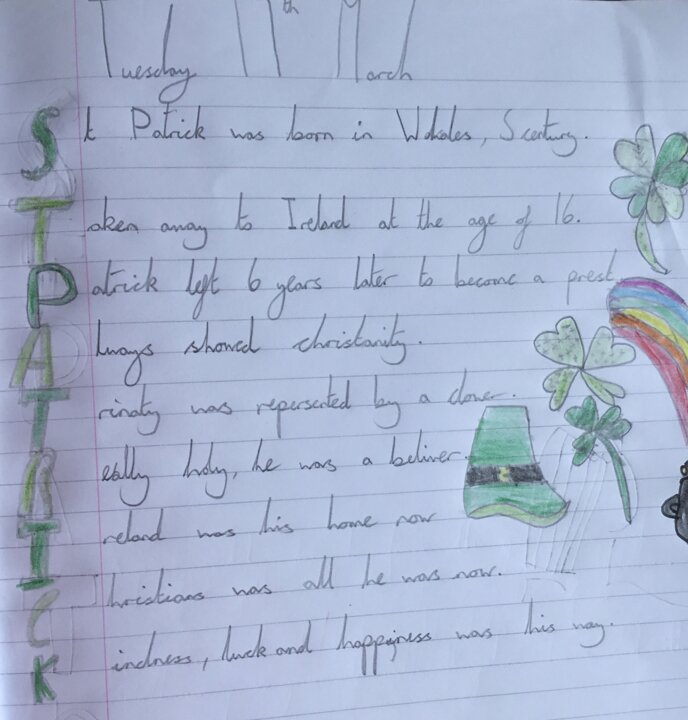 Tuesday 17th March
St Patrick was born in Wakales, 5 century.
Taken away to Ireland at the age of 16.
Patrick left 6 years later to become a prest.
Always showed christanity.
Trinaty was repersented by a clover.
Really holy, he was a beliver.
Ireland was his home now
Christians was all he was now.
Kindness, luck and happiness was his way.